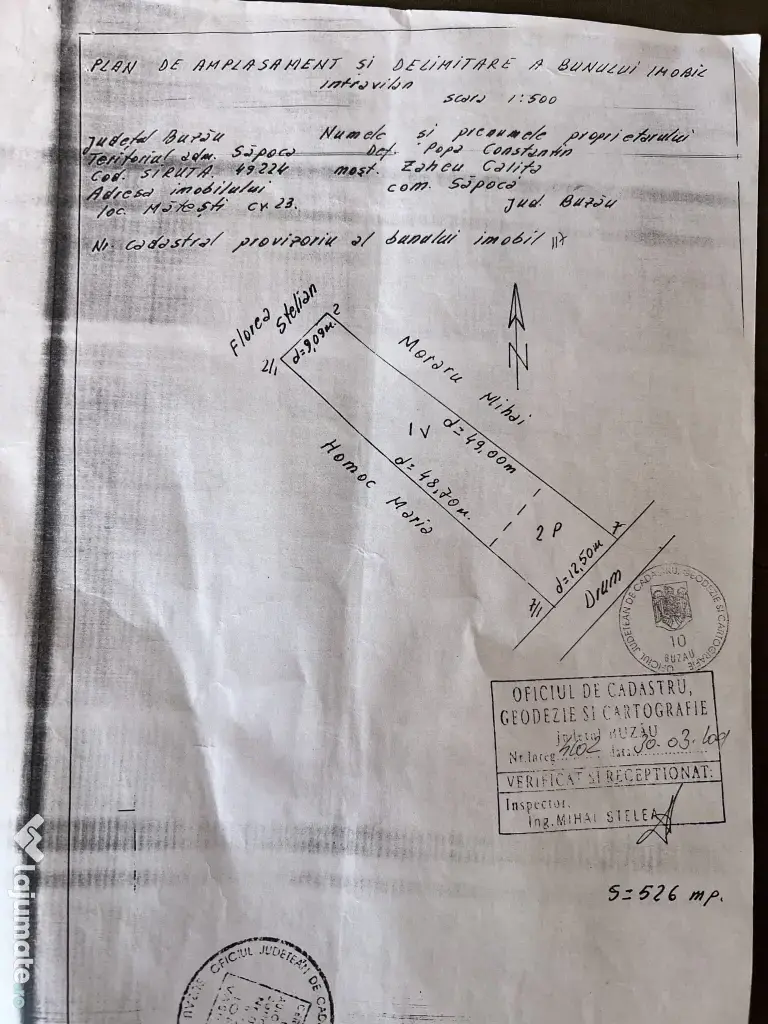 PLAN DE AMPLASAMENT SI DELIMITARE A BUNULUI IMOBIL
intravilan
scara 1:500
Judetul Buzău Numele si prenumele proprietarului
Teritoriul adm. Săpoca Def. Popa Constantin
Cod. SIRUTA 49224 most. Zaheu Calița
Adresa imobilului com. Săpoca
loc. Mătești cv.23. jud. Buzău
Nr. cadastral provizoriu al bunului imobil 117
Florea Stelian
2
2/1
d=9,09m.
Moraru Mihai
N
IV
d=49,00m
d=48,70m.
Homoc Maria
2P
7
d=12,50m
7/1
Drum
OFICIUL JUDETEAN DE CADASTRU, GEODEZIE SI CARTOGRAFIE
10
BUZAU
OFICIUL DE CADASTRU,
GEODEZIE SI CARTOGRAFIE
judetul BUZAU
Nr.înreg. data 30.03.
VERIFICAT SI RECEPTIONAT:
Inspector,
Ing.MIHAI STELEA
S=526 mp.
OFICIUL JUDETEAN DE CADA
BUZAU
Lajumate
.ro